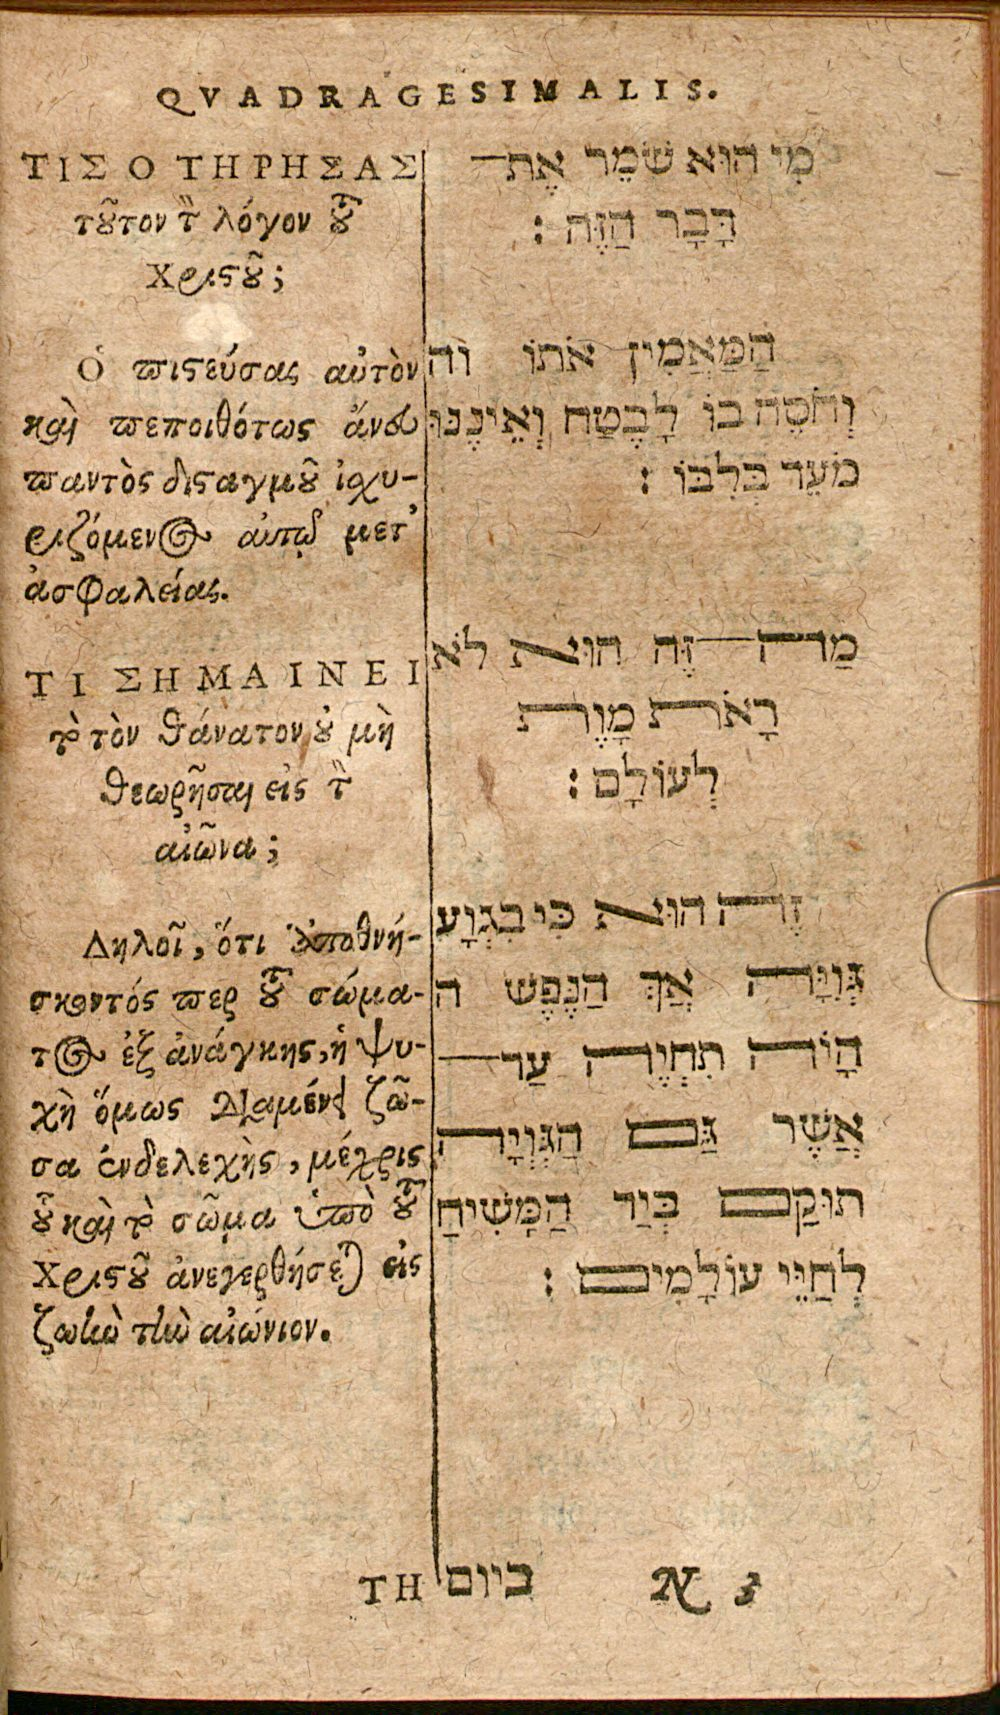 QVADRAGESIMALIS.
ΤΙΣ Ο ΤΗΡΗΣΑΣ
τȣ͂τον τ̀ λόγον τȣ͂
Χριϛȣ͂;
Ὁ πιϛεύσας αὐτὸν
καὶ πεποιθότως ἄνευ
παντὸς διϛαγμȣ͂ ἰσχυ-
ριζόμενος αὐτῷ μετ'
ἀσφαλείας.
ΤΙ ΣΗΜΑΙΝΕΙ
τὸ τὸν θάνατον ȣ̓ μὴ
θεωρῆσαι εἰς τ̀
αἰῶνα;
Δηλοῖ, ὅτι ἀποθνή-
σκοντός περ τȣ͂ σώμα-
τος ἐξ ἀνάγκης, ἡ ψυ-
χὴ ὅμως διαμένει ζῶ-
σα ἐνδελεχὴς, μέχρις
ȣ̔͂ καὶ τὸ σῶμα ὑπὸ τȣ͂
Χριϛȣ͂ ἀνεγερθήσεται εἰς
ζωὴν τὴν αἰώνιον.
ΤΗ
מִי הוּא שֹׁמֵר אֶת־
דָּבָר הַזֶּה :
הַמַּאֲמִין אֹתוֹ וה
וְחֹסֶה בוֹ לָבֶטַח וְאֵינֶנּוּ
מֹעֵד בְּלִבּוֹ :
מַה־זֶּה הוּא לֹא
רָאֹת מָוֶת
לְעוֹלָם :
זֶה הוּא כִּי בִגְוָע
גְּוִיָּה אַךְ הַנֶּפֶשׁ ה
הָוֹה תִחְיֶה עַד־
אֲשֶׁר גַּם הַגְּוִיָּה
תוּקַם בְּיַד הַמָּשִׁיחָ
לְחַיֵּי עוֹלָמִים :
ביום
N 3